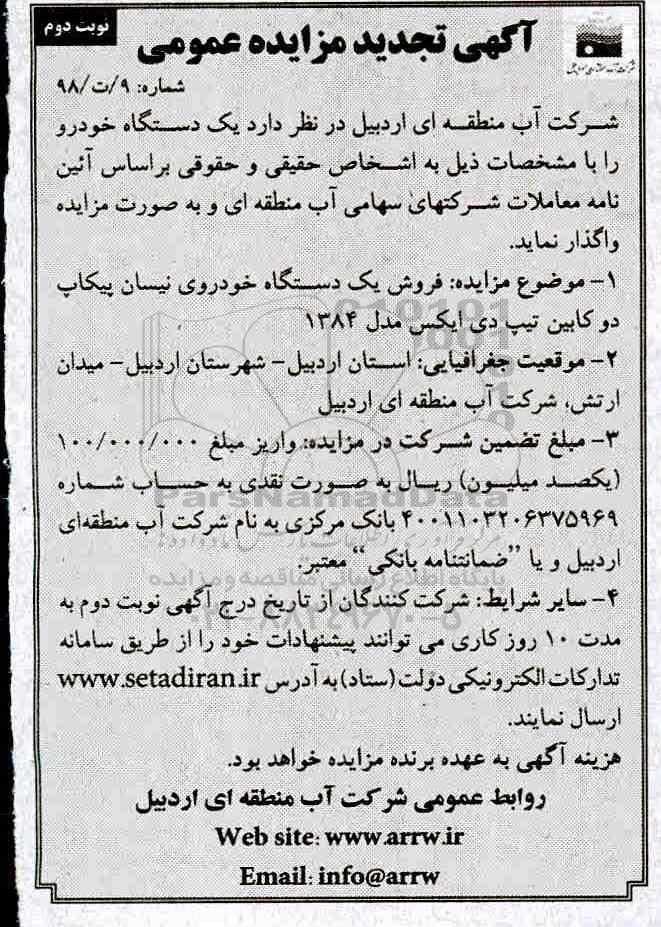 نوبت دوم
آگهی تجدید مزایده عمومی
شماره: ۹/ت/۹۸
شرکت آب منطقه ای اردبیل در نظر دارد یک دستگاه خودرو
را با مشخصات ذیل به اشخاص حقیقی و حقوقی براساس آئین
نامه معاملات شرکتهای سهامی آب منطقه ای و به صورت مزایده
واگذار نماید.
۱- موضوع مزایده: فروش یک دستگاه خودروی نیسان پیکاپ
دو کابین تیپ دی ایکس مدل ۱۳۸۴
۲- موقعیت جغرافیایی: استان اردبیل- شهرستان اردبیل- میدان
ارتش، شرکت آب منطقه ای اردبیل
۳- مبلغ تضمین شرکت در مزایده: واریز مبلغ ۱۰۰/۰۰۰/۰۰۰
(یکصد میلیون) ریال به صورت نقدی به حساب شماره
ParsNamadData
۴۰۰۱۱۰۳۲۰۶۳۷۵۹۶۹ بانک مرکزی به نام شرکت آب منطقه‌ای
اردبیل و یا ”ضمانتنامه بانکی“ معتبر.
پایگاه اطلاع رسانی مناقصه و مزایده
۴- سایر شرایط: شرکت کنندگان از تاریخ درج آگهی نوبت دوم به
۰۲۱-۸۸۳۴۹۶۷۰-۵
مدت ۱۰ روز کاری می توانند پیشنهادات خود را از طریق سامانه
تدارکات الکترونیکی دولت (ستاد) به آدرس www.setadiran.ir
ارسال نمایند.
هزینه آگهی به عهده برنده مزایده خواهد بود.
روابط عمومی شرکت آب منطقه ای اردبیل
Web site: www.arrw.ir
Email: info@arrw